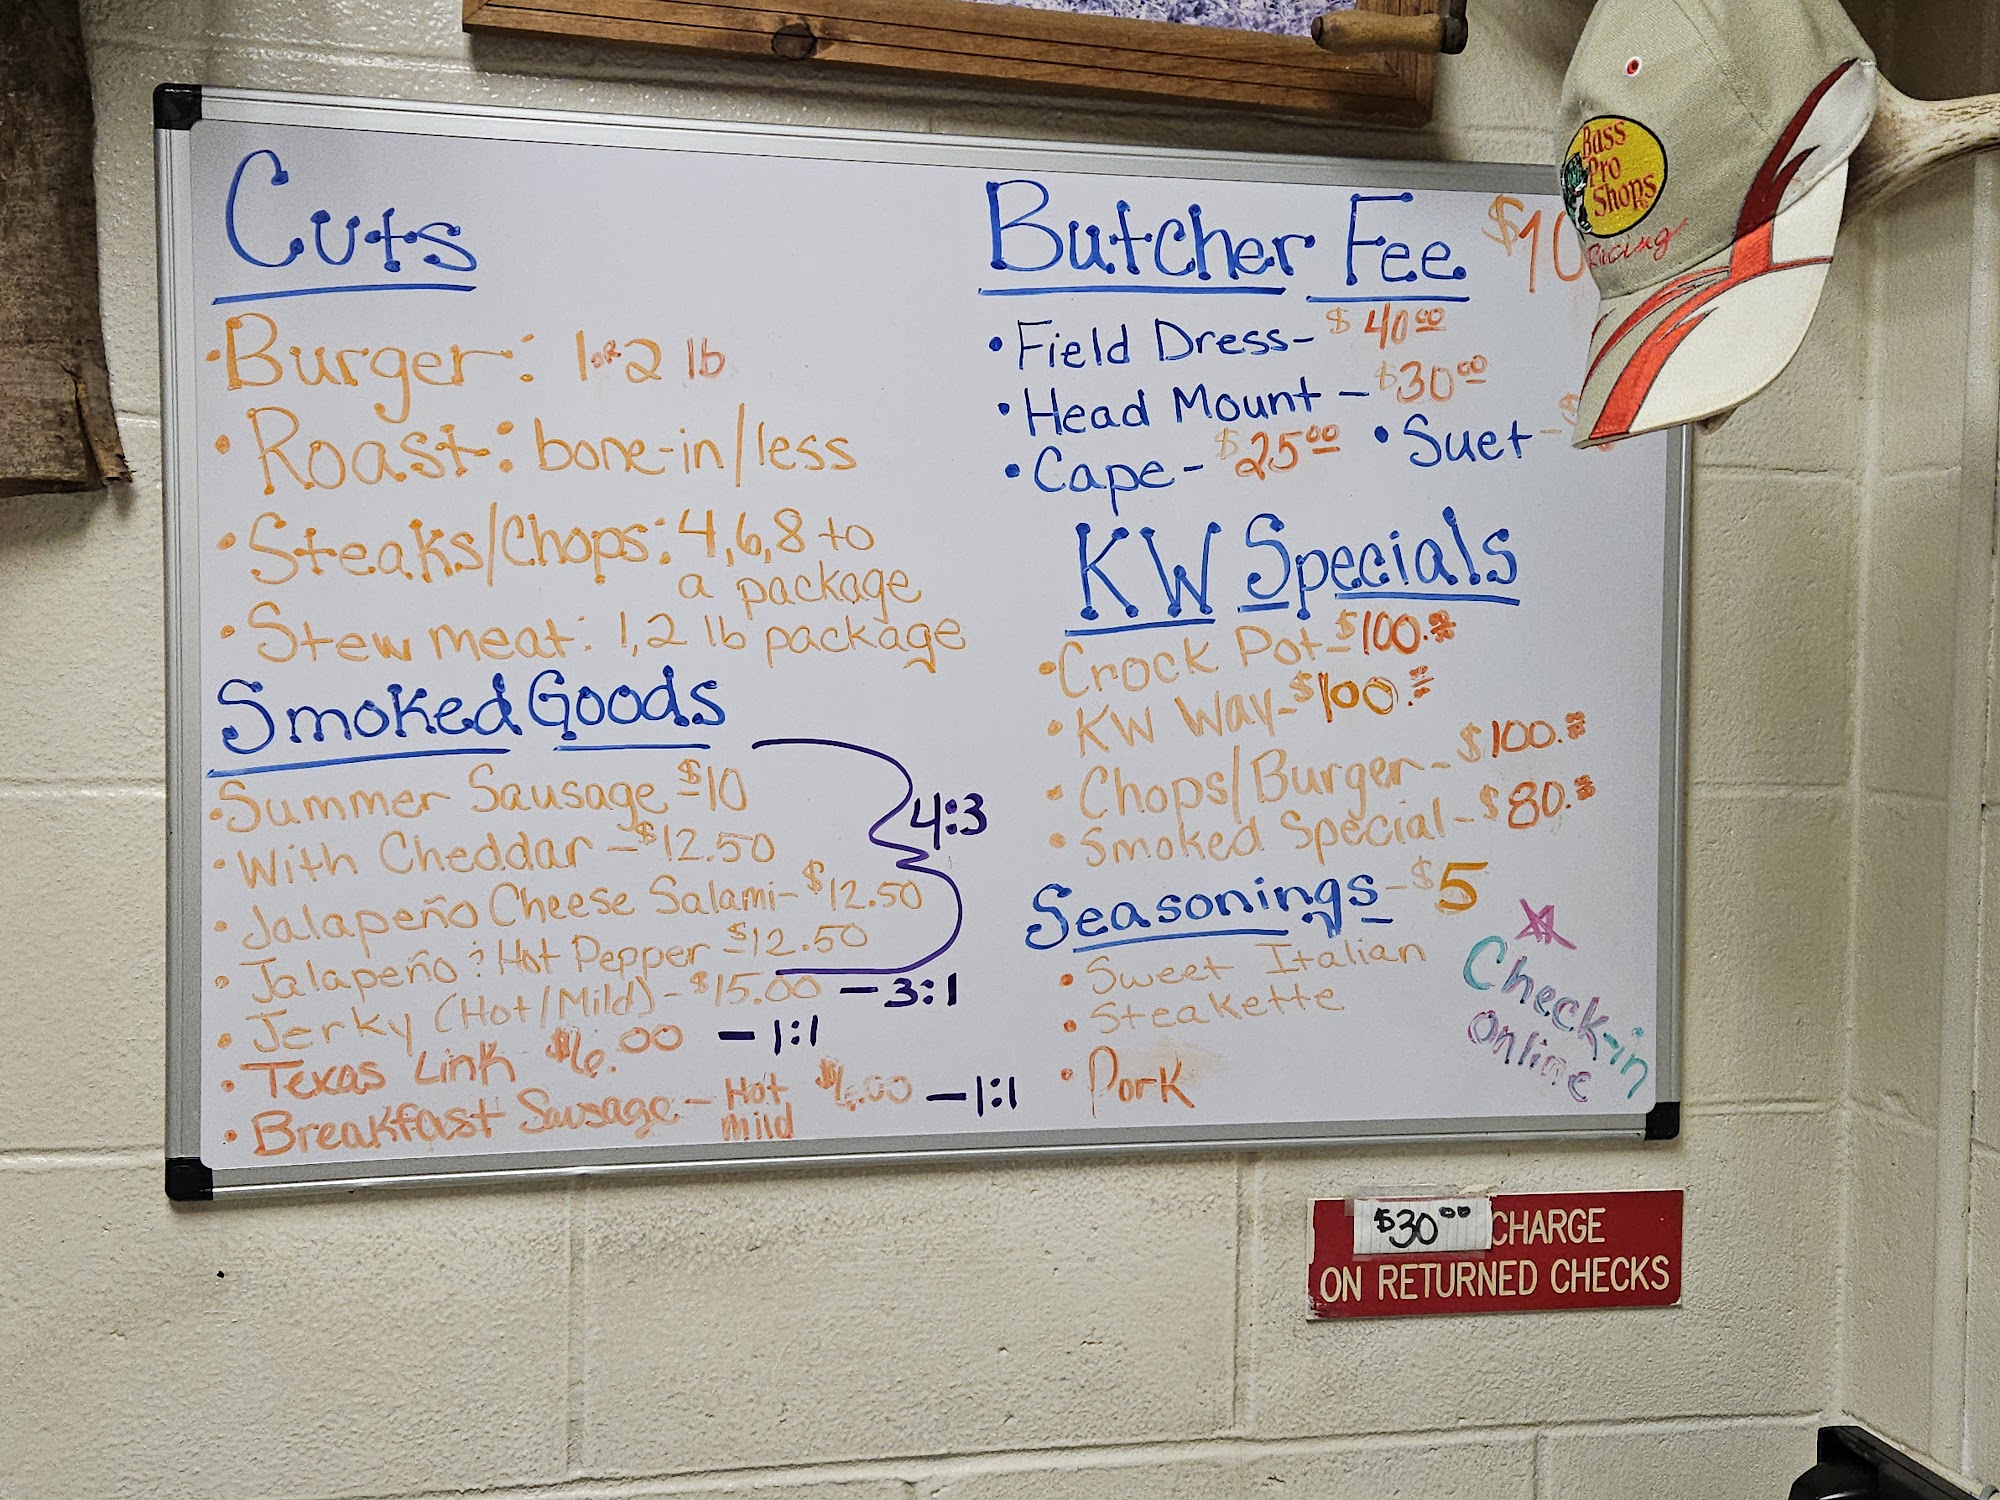 Cuts
• Burger: 1 or 2 lb
• Roast: bone-in/less
• Steaks/Chops: 4,6,8 to
a package
• Stew meat: 1,2 lb package
Smoked Goods
• Summer Sausage $10
• With Cheddar - $12.50
• Jalapeño Cheese Salami - $12.50
• Jalapeño & Hot Pepper $12.50
4:3
• Jerky (Hot/Mild) - $15.00 - 3:1
• Texas Link $6.00 - 1:1
• Breakfast Sausage - Hot $6.00 - 1:1
mild
Butcher Fee
• Field Dress - $40.00
• Head Mount - $30.00
• Cape - $25.00 • Suet -
KW Specials
• Crock Pot - $100.00
• KW Way - $100.00
• Chops/Burger - $100.00
• Smoked Special - $80.00
Seasonings - $5
• Sweet Italian
• Steakette
• Pork
Check-in
Online
Bass
Pro
Shops
Racing
$30.00 CHARGE
ON RETURNED CHECKS